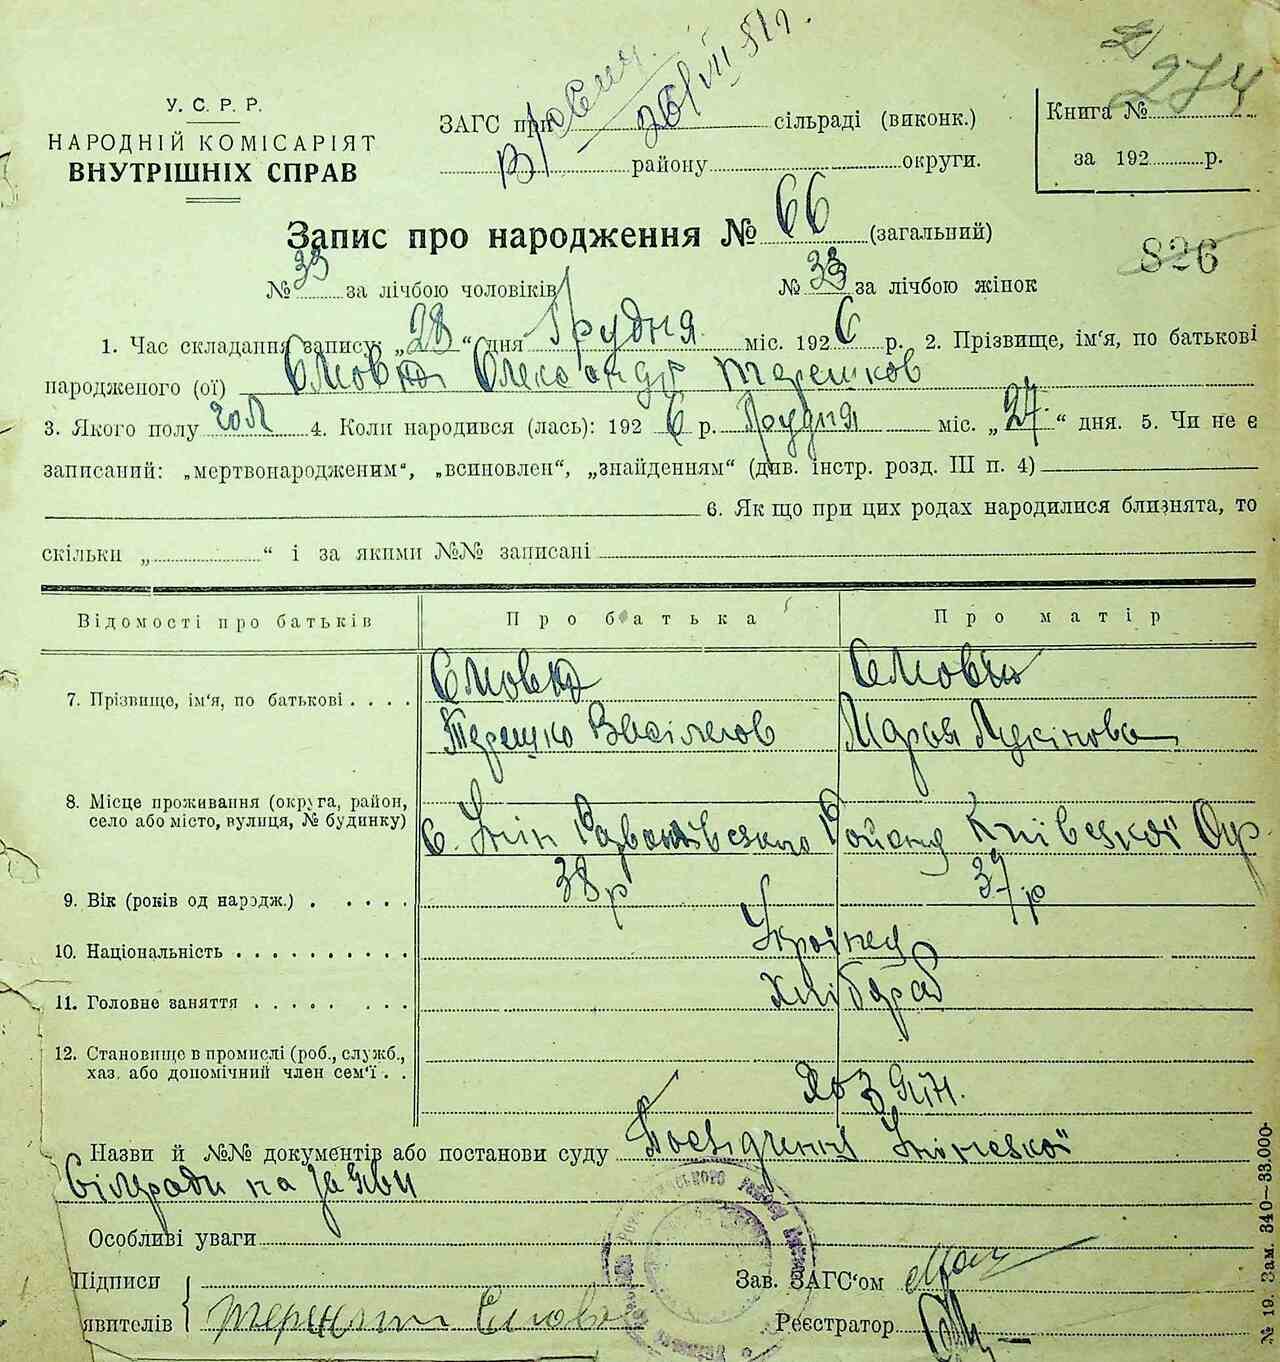 274
У. С. Р. Р.
НАРОДНІЙ КОМІСАРІЯТ
ВНУТРІШНІХ СПРАВ
ЗАГС при сільраді (виконк.)
району округи.
Книга №
за 192 р.
Запис про народження № 66 (загальний)
826
№ 33 за лічбою чоловіків № 33 за лічбою жінок
1. Час складання запису: „28“ дня Грудня міс. 1926 р. 2. Прізвище, ім'я, по батькові
народженого (ої) Олександр Терешков
3. Якого полу чол 4. Коли народився (лась): 1926 р. Грудня міс. „27“ дня. 5. Чи не є
записаний: „мертвонародженим“, „всиновлен“, „знайденням“ (див. інстр. розд. III п. 4)
6. Як що при цих родах народилися близнята, то
скільки „ “ і за якими №№ записані
Відомості про батьків Про батька Про матір
7. Прізвище, ім'я, по батькові
Терешко Васілєгов Марья Лукінова
8. Місце проживання (округа, район,
село або місто, вулиця, № будинку)
с. Район Київської Окр
9. Вік (років од народж.) 38 р 37 р
10. Національність Українец
11. Головне заняття Хлібороб
12. Становище в промислі (роб., служб.,
хаз. або допомічний член сем'ї Хозяїн.
Назви й №№ документів або постанови суду Посвідчення
Сілради на заяви
Особливі уваги
Підписи
явителів
Зав. ЗАГС'ом
Реєстратор
№ 19. Зам. 340—33.000